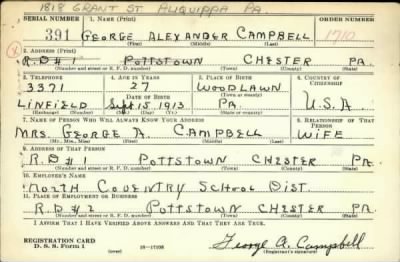 1818 GRANT ST ALIQUIPPA PA.
SERIAL NUMBER 1. NAME (Print)
391 GEORGE ALEXANDER CAMPBELL 1710
(First) (Middle) (Last)
2. ADDRESS (Print)
R.D #1 POTTSTOWN CHESTER PA.
(Number and street or R. F. D. number) (Town) (County) (State)
3. TELEPHONE 4. AGE IN YEARS 5. PLACE OF BIRTH 6. COUNTRY OF CITIZENSHIP
3371 27 WOODLAWN
DATE OF BIRTH (Town or county)
LINFIELD Sept 15 1913 PA. U.S.A
(Exchange) (Number) (Mo.) (Day) (Yr.) (State or country)
7. NAME OF PERSON WHO WILL ALWAYS KNOW YOUR ADDRESS 8. RELATIONSHIP OF THAT PERSON
MRS. GEORGE A. CAMPBELL WIFE
(Mr., Mrs., Miss) (First) (Middle) (Last)
9. ADDRESS OF THAT PERSON
R.D #1 POTTSTOWN CHESTER PA
(Number and street or R. F. D. number) (Town) (County) (State)
10. EMPLOYER'S NAME
NORTH COVENTRY SCHOOL DIST.
11. PLACE OF EMPLOYMENT OR BUSINESS
R.D #2 POTTSTOWN CHESTER PA
(Number and street or R. F. D. number) (Town) (County) (State)
I AFFIRM THAT I HAVE VERIFIED ABOVE ANSWERS AND THAT THEY ARE TRUE.
REGISTRATION CARD
D. S. S. Form 1 George A. Campbell
(Registrant's signature)